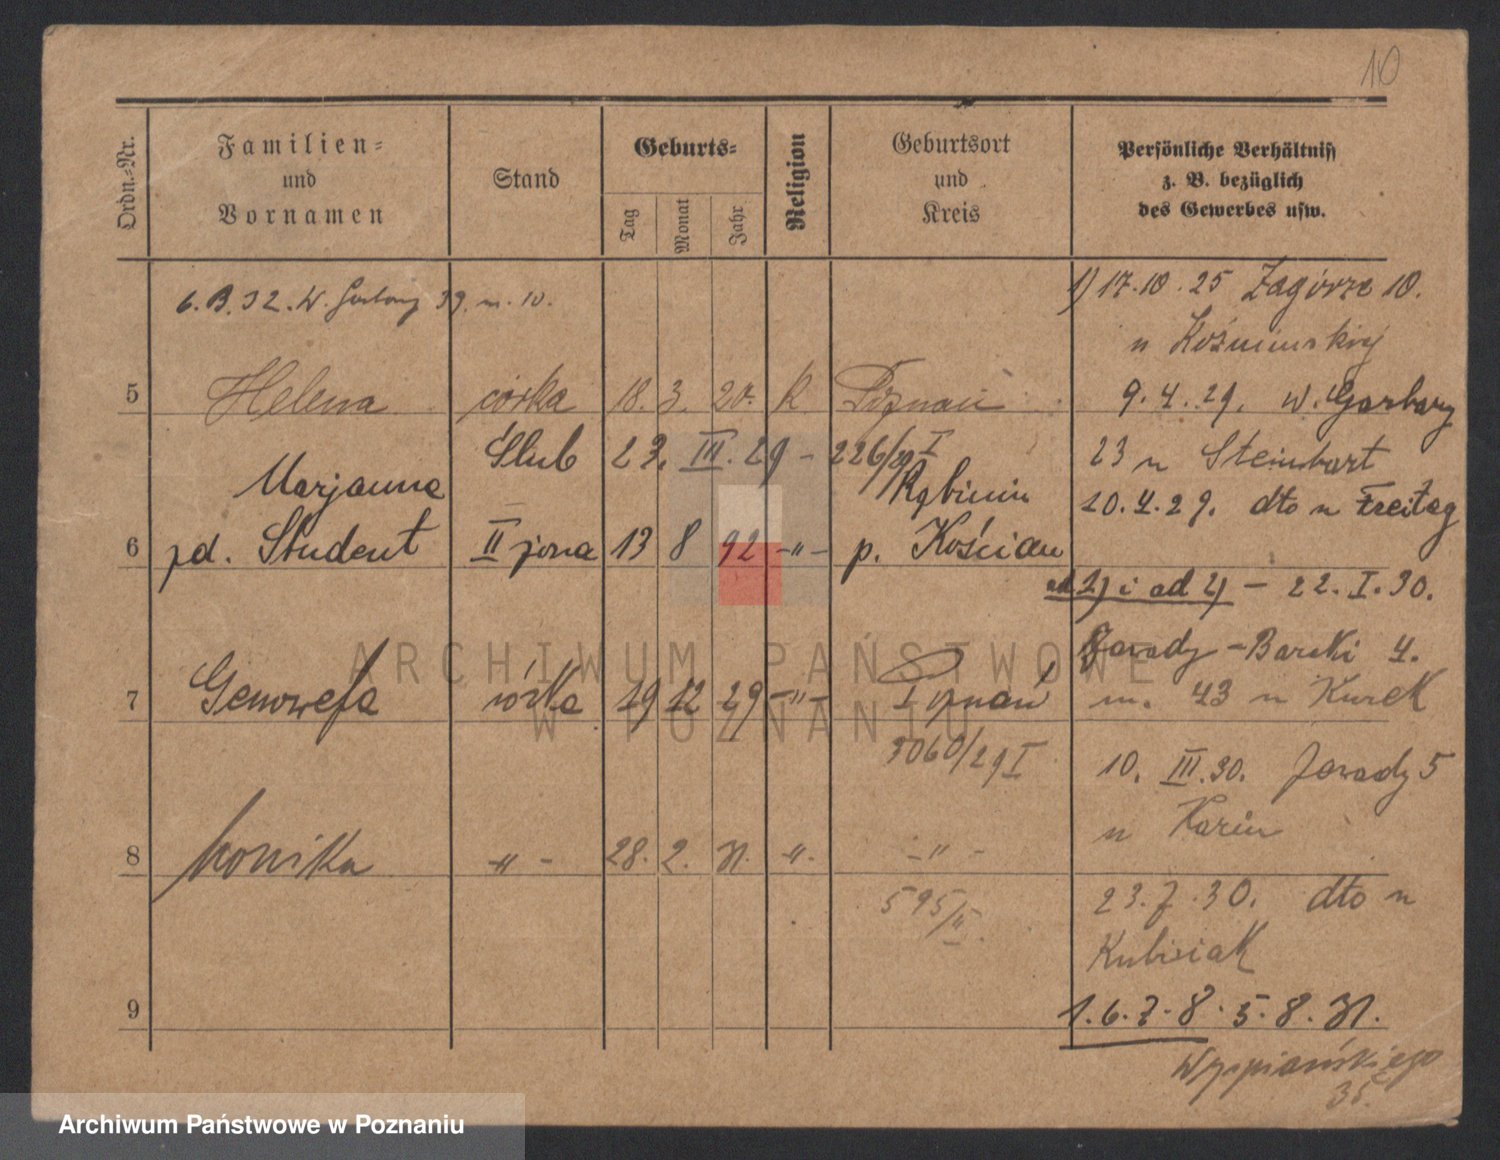 10
Ordn.-Nr.
Familien-
und
Vornamen
Stand
Geburts-
Tag
Monat
Jahr
Religion
Geburtsort
und
Kreis
Persönliche Verhältniss
z. B. bezüglich
des Gewerbes usw.
6. B. 32. W. Garbary 39. m. 10.
1) 17.10.25 Zagórze 10.
u Koźmińskiej
5 Helena córka 18. 3. 20. K Poznań
9.4.29. W. Garbary
Ślub 23. III. 29 - 226/29 I
23 u Steinbart
Marjanna
10.4.29. dto u Freitag
6 zd. Student II żona 13 8 92 -"- p. Kościan
ad 1) i ad 2) - 22.I.30.
Zawady - Barski 4.
7 Genowefa córka 19 12 29 -"- Poznań
m. 43 u Kurek
3060/29 I
10. III.30. Zawady 5
u
8 Monika -"- 28. 2. 31. -"- -"-
595/II
23.7.30. dto u
Kubisiak
9
1.6.7.8. 5.8.31.
Wyspiańskiego
35.
ARCHIWUM PAŃSTWOWE
W POZNANIU
Archiwum Państwowe w Poznaniu